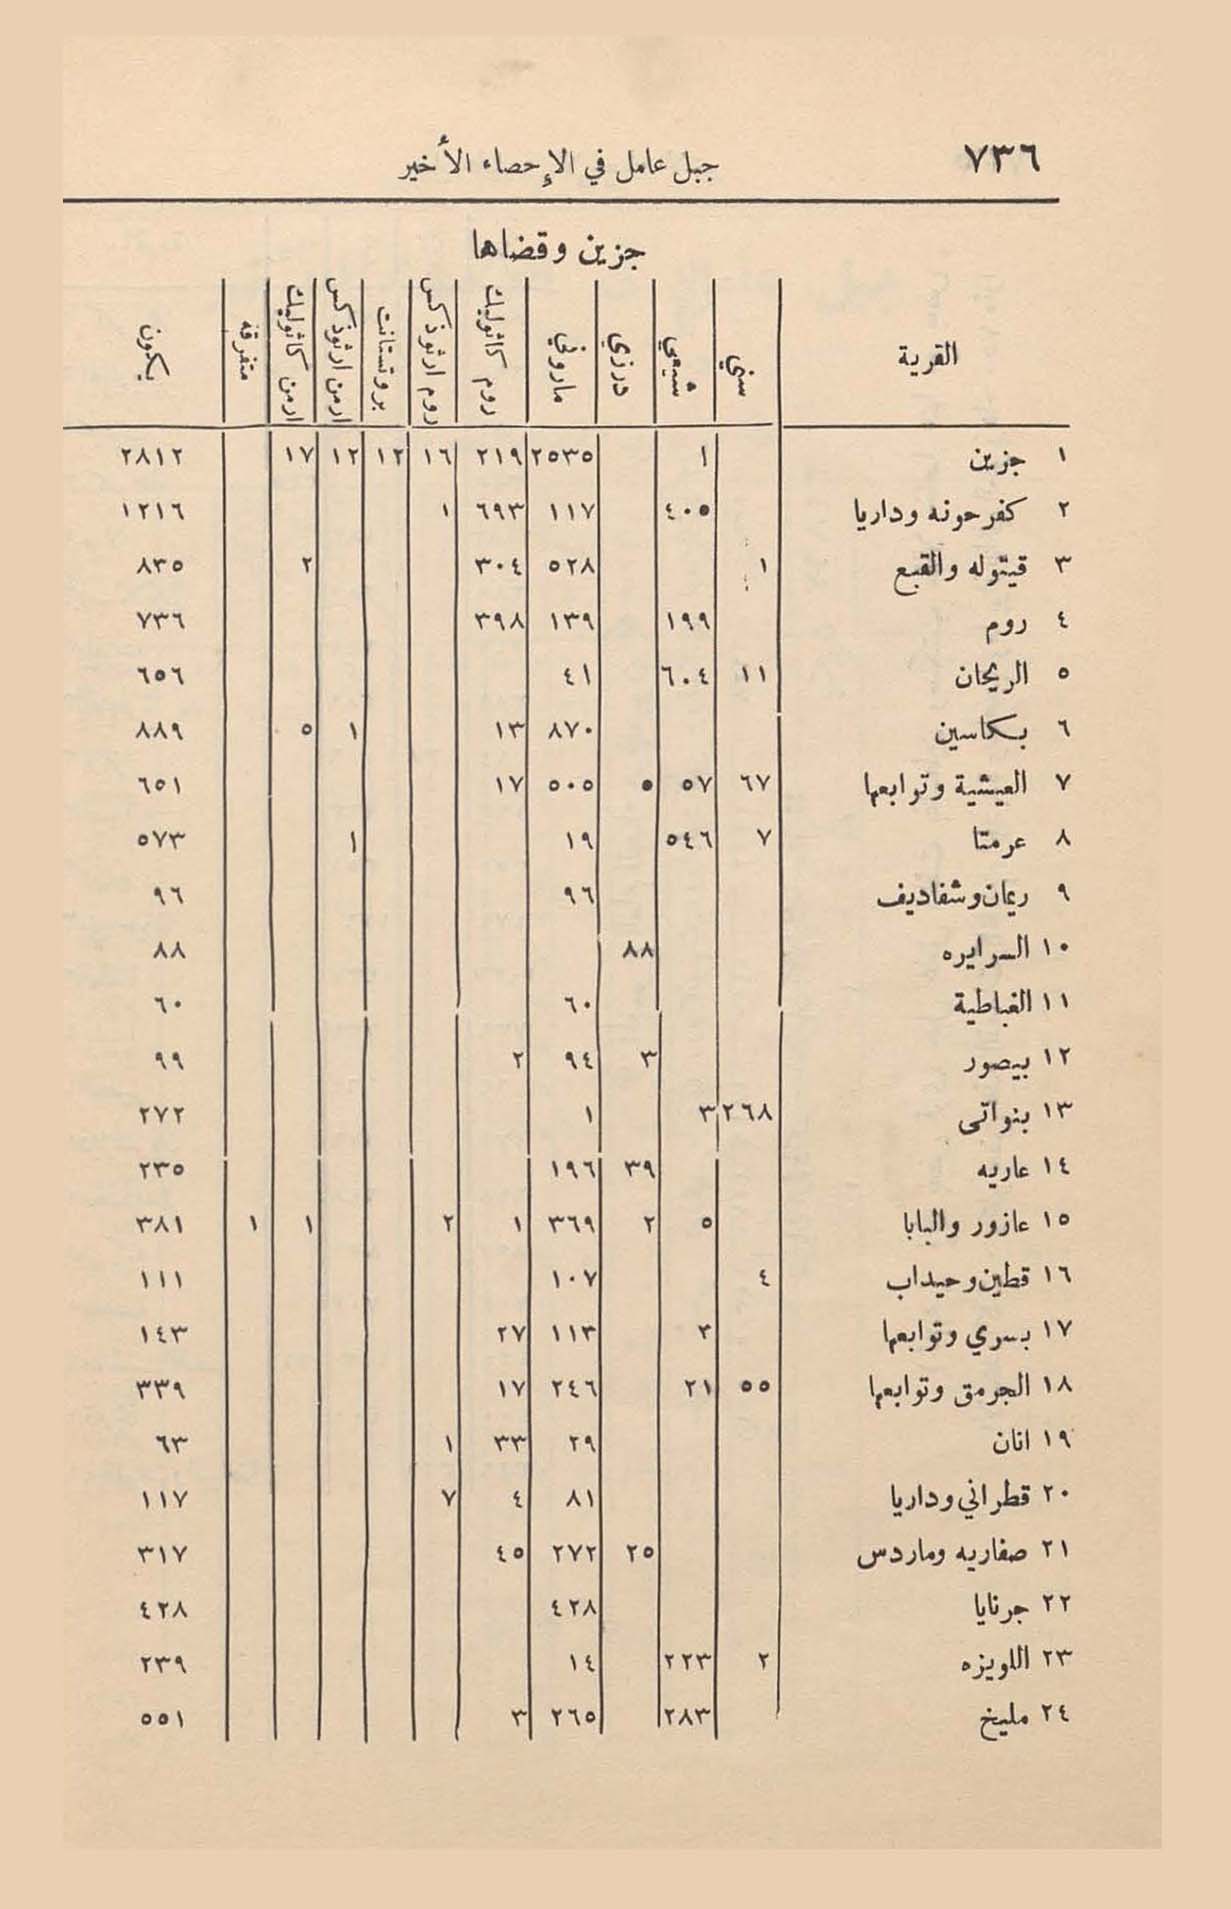 ٧٣٦ جبل عامل في الإحصاء الأخير
جزين وقضاها
القرية سني شيعي درزي ماروني روم كاثوليك روم ارثوذكس بروتستانت ارمن ارثوذكس ارمن كاثوليك متفرقه يكون
١ جزين ١ ٢٥٣٥ ٢١٩ ١٦ ١٢ ١٢ ١٧ ٢٨١٢
٢ كفرحونه وداريا ٤٠٥ ١١٧ ٦٩٣ ١ ١٢١٦
٣ قيتوله والقبع ١ ٥٢٨ ٣٠٤ ٢ ٨٣٥
٤ روم ١٩٩ ١٣٩ ٣٩٨ ٧٣٦
٥ الريحان ١١ ٦٠٤ ٤١ ٦٥٦
٦ بكاسين ٨٧٠ ١٣ ١ ٥ ٨٨٩
٧ العيشية وتوابعها ٦٧ ٥٧ ٥ ٥٠٥ ١٧ ٦٥١
٨ عرمتا ٧ ٥٤٦ ١٩ ١ ٥٧٣
٩ ريمان وشفاديف ٩٦ ٩٦
١٠ السرايره ٨٨ ٨٨
١١ الغباطية ٦٠ ٦٠
١٢ بيصور ٣ ٩٤ ٢ ٩٩
١٣ بنواتى ٢٦٨ ٣ ١ ٢٧٢
١٤ عاريه ٣٩ ١٩٦ ٢٣٥
١٥ عازور والبابا ٥ ٢ ٣٦٩ ١ ٢ ١ ١ ٣٨١
١٦ قطين وحيداب ٤ ١٠٧ ١١١
١٧ بسري وتوابعها ٣ ١١٣ ٢٧ ١٤٣
١٨ الجرمق وتوابعها ٥٥ ٢١ ٢٤٦ ١٧ ٣٣٩
١٩ انان ٢٩ ٣٣ ١ ٦٣
٢٠ قطراني وداريا ٨١ ٤ ٧ ١١٧
٢١ صفاريه وماردس ٢٥ ٢٧٢ ٤٥ ٣١٧
٢٢ جرنايا ٤٢٨ ٤٢٨
٢٣ اللويزه ٢ ٢٢٣ ١٤ ٢٣٩
٢٤ مليخ ٢٨٣ ٢٦٥ ٣ ٥٥١